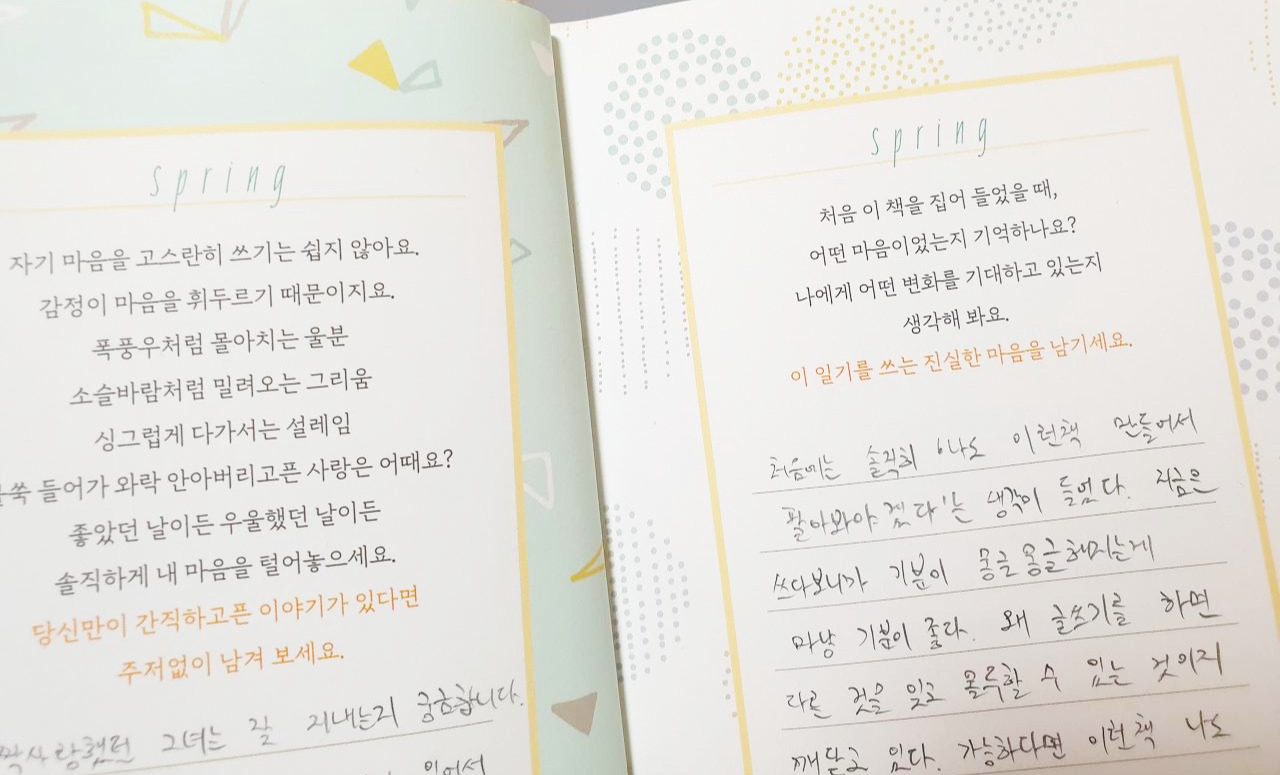 spring
자기 마음을 고스란히 쓰기는 쉽지 않아요.
감정이 마음을 휘두르기 때문이지요.
폭풍우처럼 몰아치는 울분
소슬바람처럼 밀려오는 그리움
싱그럽게 다가서는 설레임
들어가 와락 안아버리고픈 사랑은 어때요?
좋았던 날이든 우울했던 날이든
솔직하게 내 마음을 털어놓으세요.
당신만이 간직하고픈 이야기가 있다면
주저없이 남겨 보세요.
짝사랑했던 그녀는 잘 지내는지 궁금합니다.
있어서
spring
처음 이 책을 집어 들었을 때,
어떤 마음이었는지 기억하나요?
나에게 어떤 변화를 기대하고 있는지
생각해 봐요.
이 일기를 쓰는 진실한 마음을 남기세요.
처음에는 솔직히 '나도 이런책 만들어서
팔아봐야겠다'는 생각이 들었다. 지금은
쓰다보니까 기분이 몽글몽글해지는게
마냥 기분이 좋다. 왜 글쓰기를 하면
다른 것을 잊고 몰두할 수 있는 것인지
깨닫고 있다. 가능하다면 이런책 나도